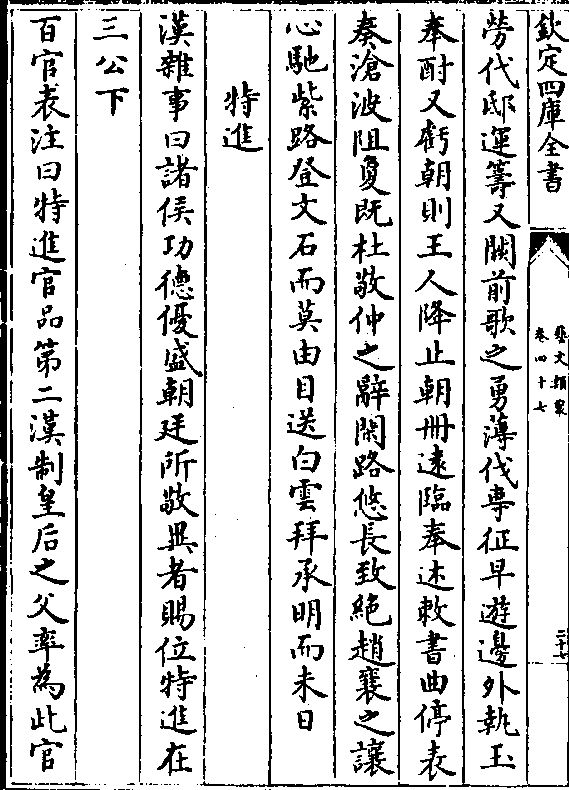 欽定四庫全書
藝文類聚
卷四十七
二十七
勞代邸運籌又闕前歌之勇薄伐専征早遊邊外執玉
奉酎又虧朝則王人降止朝冊遠臨奉述敕書曲停表
奏滄波阻夐既杜敬仲之辭闕路悠長致絶趙襄之讓
心馳紫路登文石而莫由目送白雲拜承明而未日
特進
漢雜事曰諸侯功德優盛朝廷所敬異者賜位特進在
三公下
百官表注曰特進官品第二漢制皇后之父率為此官